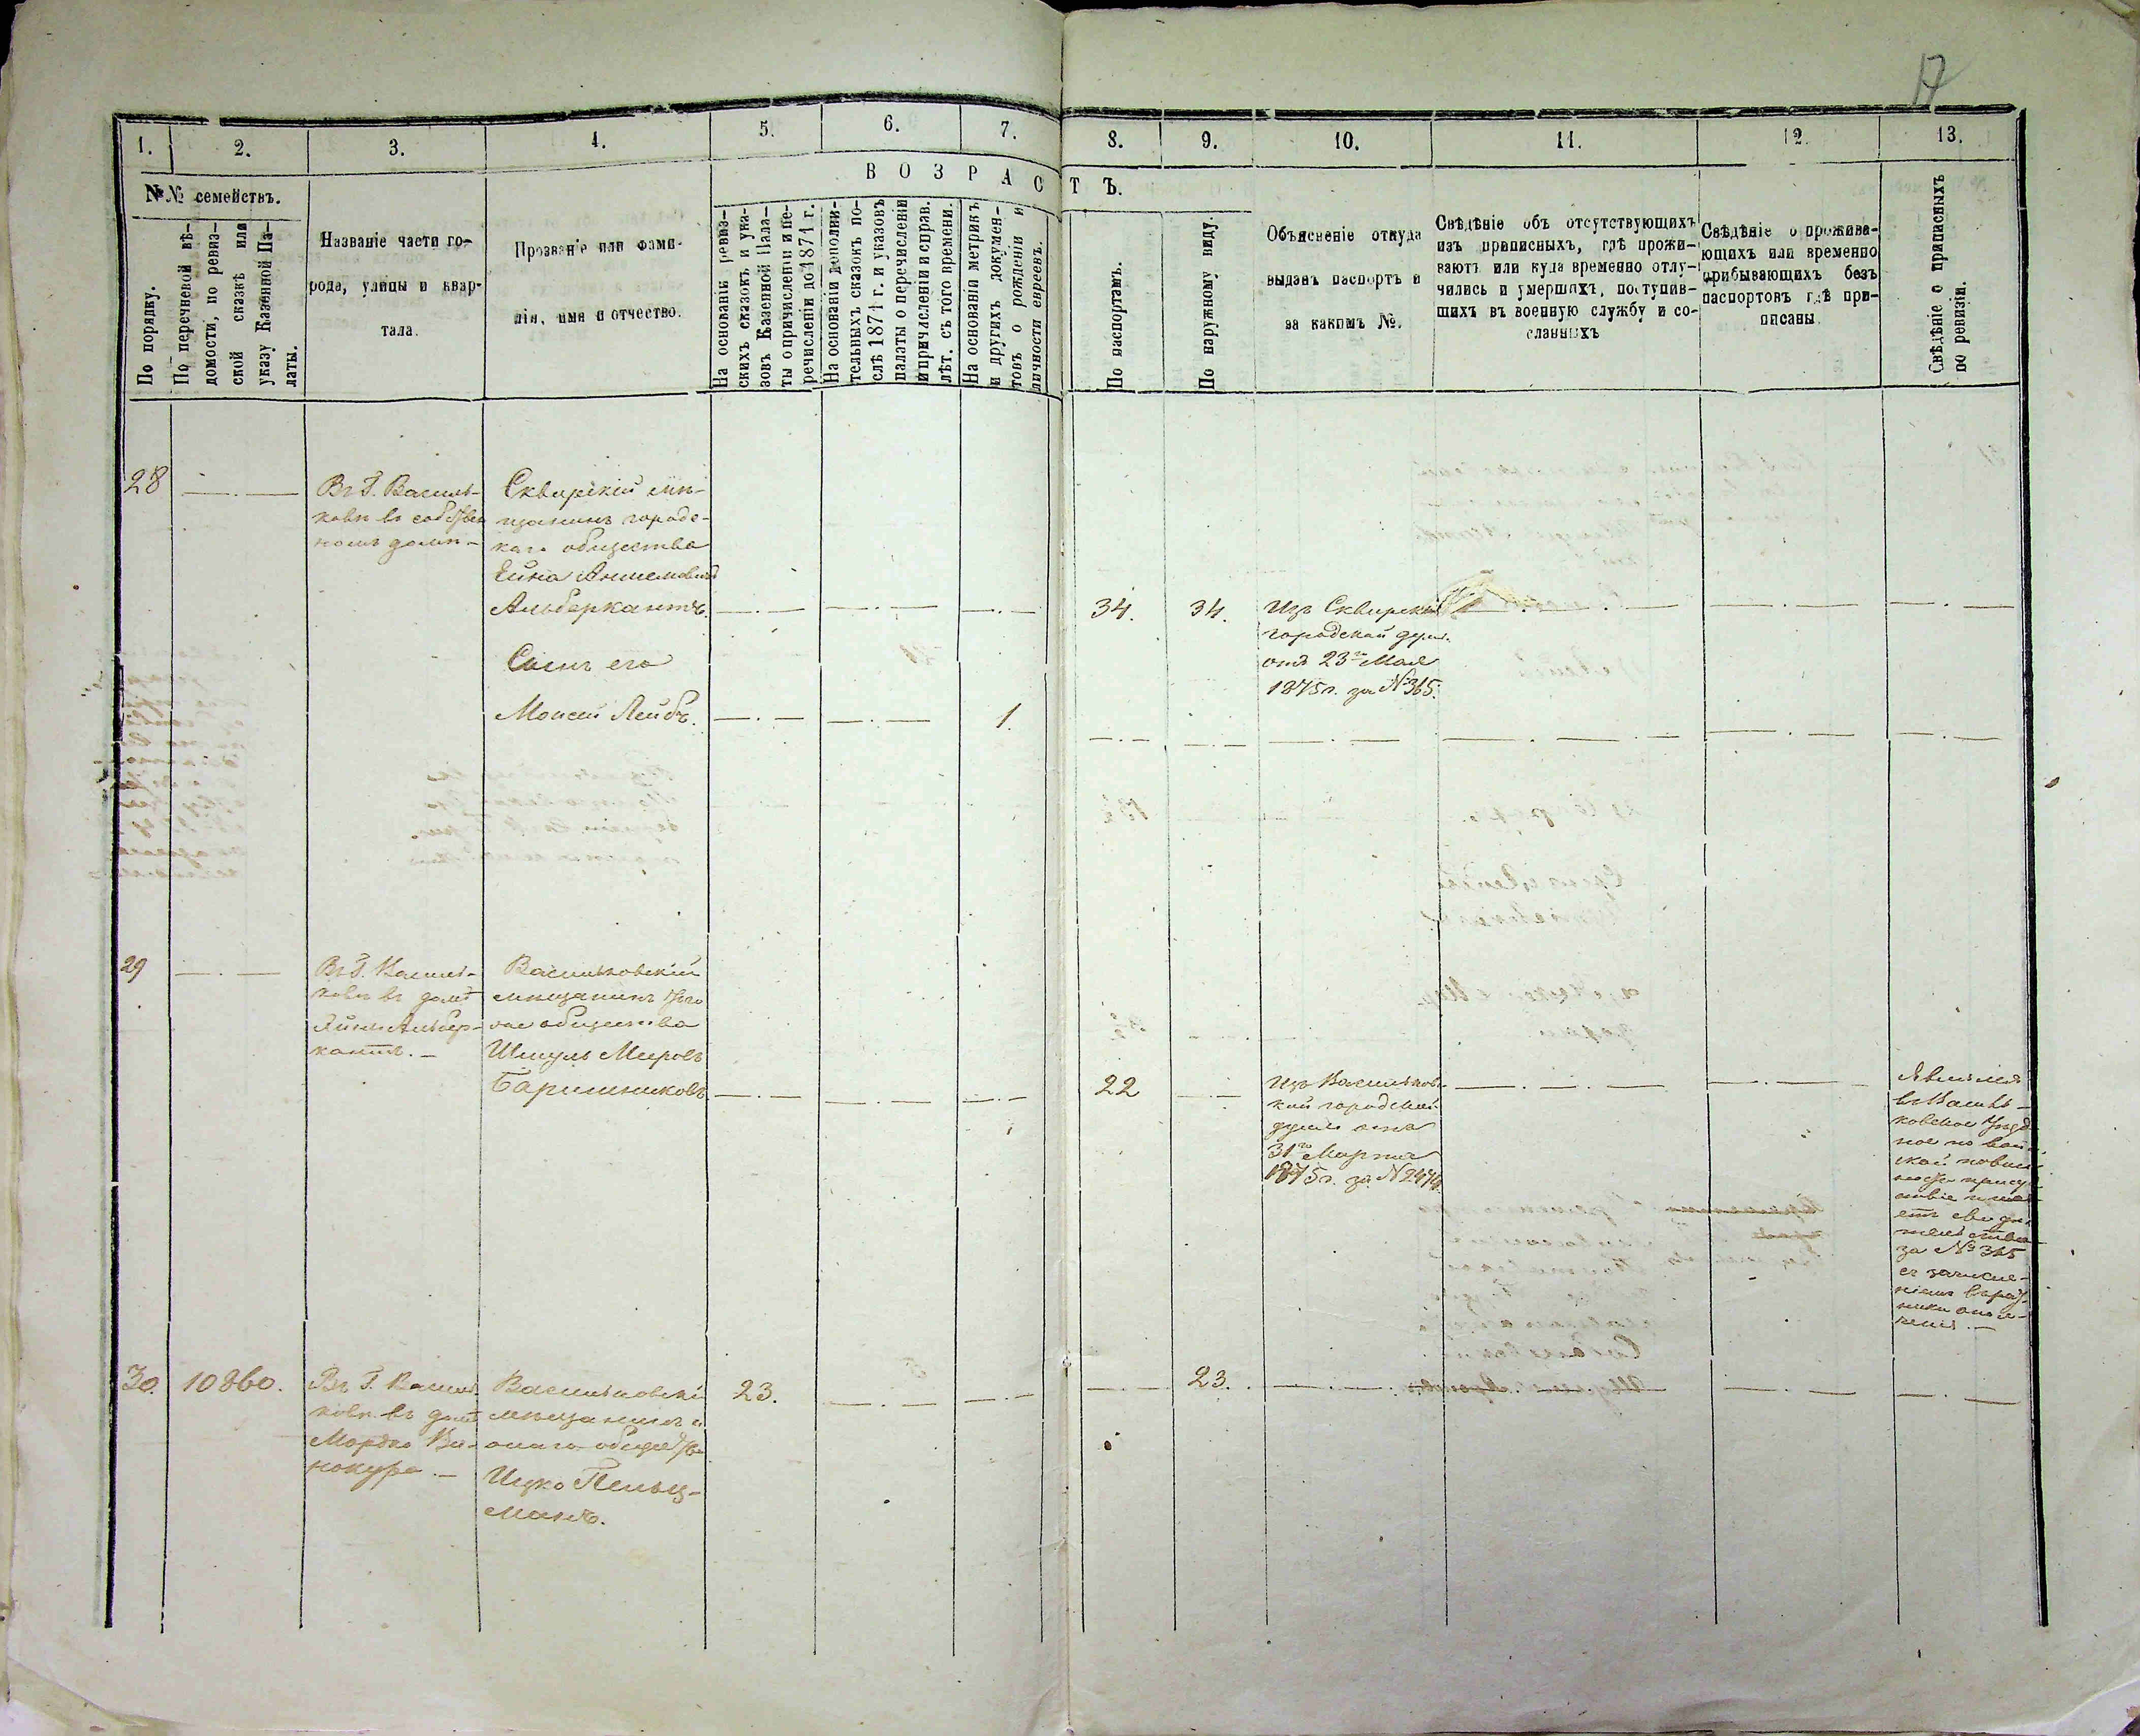 17
1.
2.
3.
4.
5.
6.
7.
8.
9.
10.
11.
12.
13.
№№ семействъ.
В О З Р А С Т Ъ.
По порядку.
По перечневой вѣ-
домости, по ревиз-
ской сказкѣ или
указу Казенной Па-
латы.
Названіе части го-
рода, улицы и квар-
тала.
Прозваніе или фами-
лія, имя и отчество.
На основаніи ревиз-
скихъ сказокъ и ука-
зовъ Казенной Пала-
ты о причисленіи и пе-
речисленіи до 1874 г.
На основаніи дополни-
тельныхъ сказокъ по-
слѣ 1874 г. и указовъ
палаты о перечисленіи
и причисленіи и справ.
лѣт. съ того времени.
На основаніи метрикъ
и другихъ докумен-
товъ о рожденіи и
личности евреевъ.
По паспортамъ.
По наружному виду.
Объясненіе откуда
выданъ паспортъ и
за какимъ №.
Свѣдѣніе объ отсутствующихъ
изъ приписныхъ, гдѣ прожи-
ваютъ или куда временно отлу-
чились и умершихъ, поступив-
шихъ въ военную службу и со-
сланныхъ
Свѣдѣніе о прожива-
ющихъ или временно
прибывающихъ безъ
паспортовъ гдѣ при-
писаны.
Свѣдѣніе о приписныхъ
по ревизіи.
28
Въ Г. Василь-
ковѣ въ собствен
номъ домѣ –
Сквирскій мѣ-
щанинъ городс-
каго общества
Альберкантъ.
34.
34.
Изъ Сквирской
городской думы
отъ 23го Мая
1875 г. за № 365.
Сынъ его
Моисей Лейбъ.
1.
29
Въ Г. Василь-
ковѣ въ домѣ
Альбер-
кантъ. –
Васильковскій
мѣщанинъ
общества
Шмуль Мееровъ
Баришниковъ
22
Изъ Васильков-
кой городской
думы отъ
31го Марта
1875 г. за № 2474.
Явился
въ Василь-
ковское Уѣзд
ное по воин-
ской повин
присут
ствіе
за № 315
съ зачисле-
ніемъ
30.
10860.
Въ Г. Василь
ковѣ въ домѣ
Мордко Ви-
нокура. –
Васильковскій
мѣщанинъ
онаго общества
Ицко Пельц-
манъ.
23.
23.